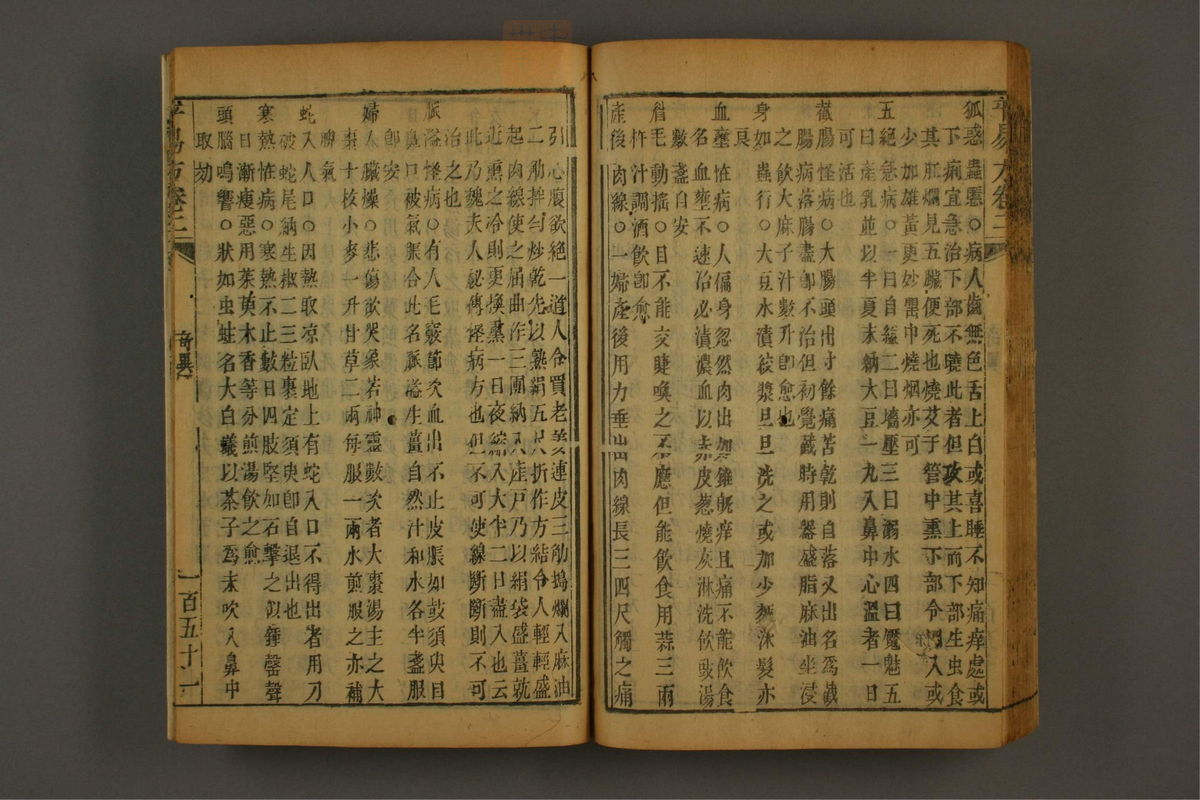 狐惑蟲䘌○病人齒無色舌上白或喜睡不知痛痒處或
下痢宜急治下部不曉此者但攻其上而下部生虫食
其肛爛見五臟便死也燒艾于管中熏下部令烟入或
少加雄黃更妙罌中燒烟亦可
五絕急病○一曰自縊二曰墻壓三曰溺水四曰魘魅五
曰產乳並以半夏末納大豆一丸入鼻中心溫者一日
可活也
截腸怪病○大腸頭出寸餘痛苦乾則自落又出名爲截
腸病落腸盡卽不治但初覺截時用器盛脂麻油坐浸
之飲大麻子汁數升卽愈也
身如蟲行○大豆水漬絞漿旦旦洗之或加少麪沐髮亦
良
血壅怪病○人偏身忽然肉出如錐旣痒且痛不能飲食
名血壅不速治必潰濃血以赤皮葱燒灰淋洗飲豉湯
數盞自安
眉毛動搖○目不能交睫喚之不應但能飲食用蒜三兩
杵汁調酒飲卽愈
產後肉線○一婦產後用力垂出肉線長三四尺觸之痛
引心腹欲絕一道人令買老姜連皮三觔搗爛入麻油
二觔拌勻炒乾先以熟絹五尺折作方結令人輕輕盛
起肉線使之屈曲作三團納入產戶乃以絹袋盛薑就
近熏之冷則更換熏一日夜縮入大半二日盡入也云
此乃魏夫人秘傳怪病方也但不可使線斷斷則不可
治之也
脈溢怪病○有人毛竅節次血出不止皮脹如鼓須臾目
鼻口被氣脹合此名脈溢生薑自然汁和水各半盞服
卽安
婦人臟燥○悲傷欲哭象若神靈數次者大棗湯主之大
棗十枚小麥一升甘草二兩每服一兩水煎服之亦補
脾氣
蛇入人口○因熱取凉臥地上有蛇入口不得出者用刀
破蛇尾納生椒二三粒裹定須臾卽自退出也
寒熱怪病○寒熱不止數日四肢堅如石擊之似鐘磬聲
日漸瘦惡用茱萸木香等分煎湯飲之愈
頭腦鳴響○狀如虫蛀名大白蟻以茶子爲末吹入鼻中
取効
平易方卷二
奇異
一百五十一